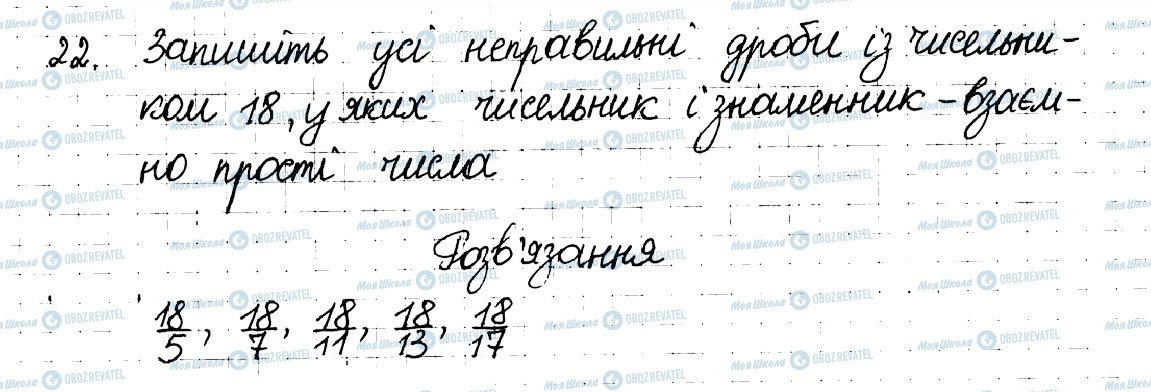 22. Запишіть усі неправильні дроби із чисельни-
ком 18, у яких чисельник і знаменник - взаєм-
но прості числа
Розв'язання
18/5, 18/7, 18/11, 18/13, 18/17